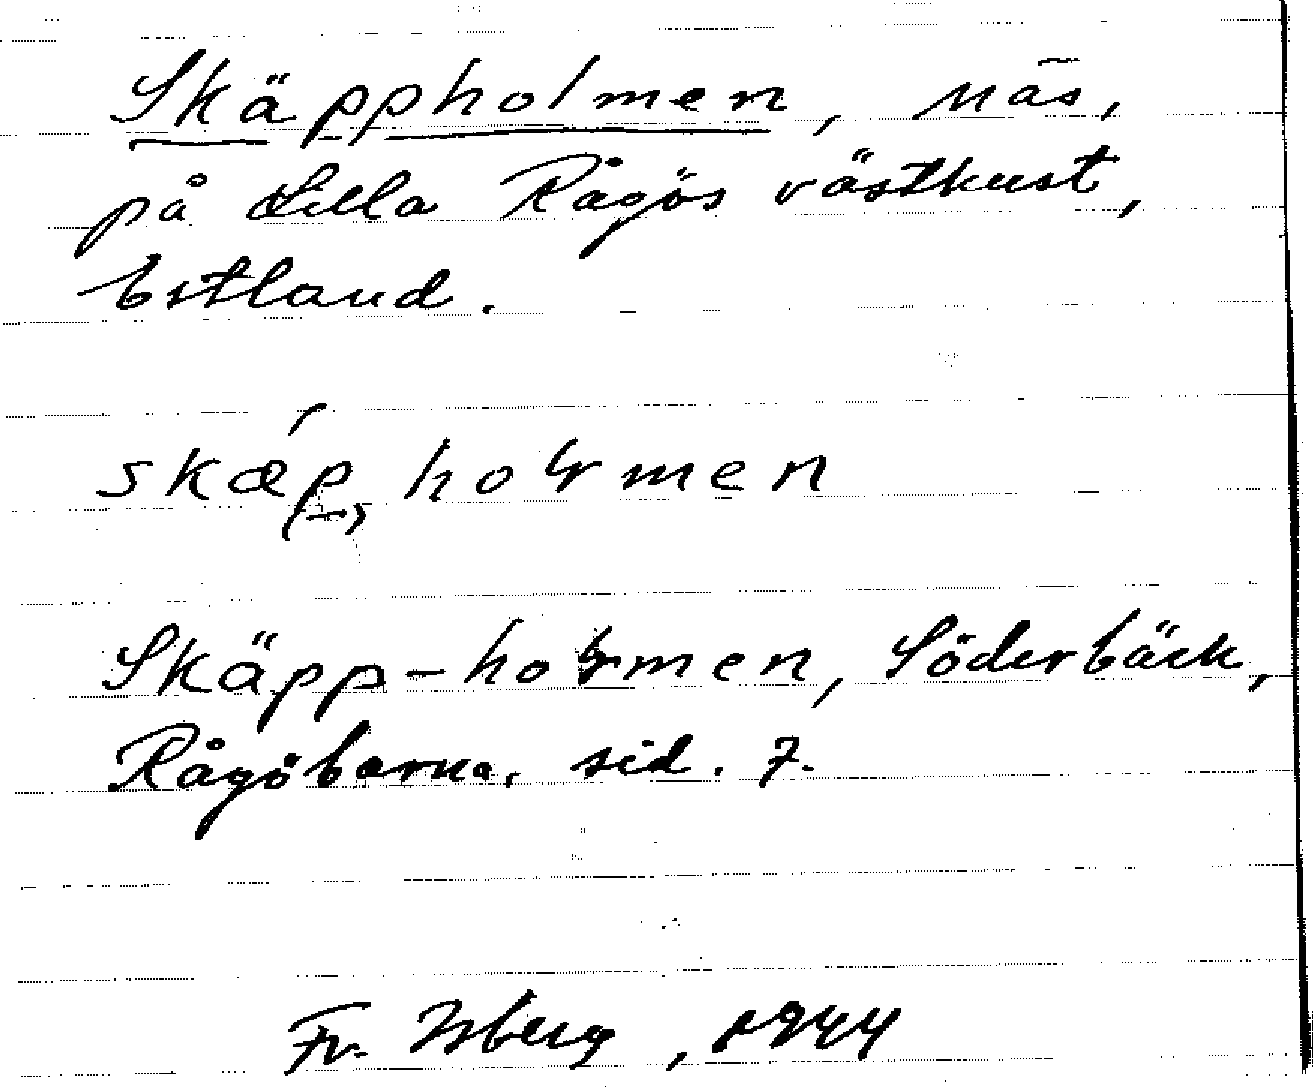 Skäppholmen, näs,
på Lilla Rågös västkust,
Estland.
skæ´p, hoɽmen
Skäpp-hoɽmen, Söderbäck,
Rågöbarna. sid. 7.
Fr. Isberg, 1944